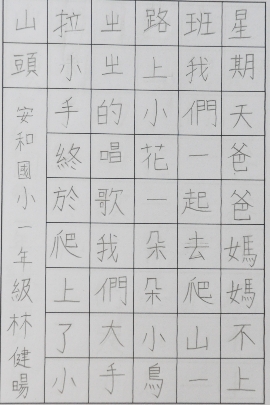 星期天爸爸媽媽不上
班我們一起去爬山一
路上小花一朵朵小鳥
出出的唱歌我們大手
拉小手終於爬上了小
山頭
安和國小一年級林健暘